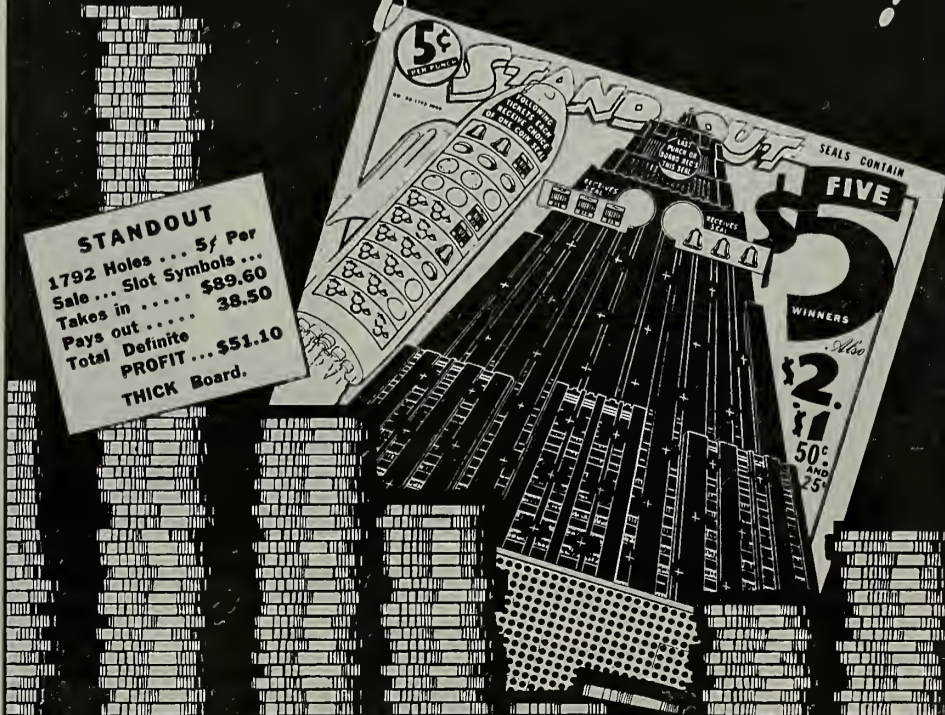 STANDOUT
1792 Holes ... 5¢ Per
Sale ... Slot Symbols ...
Takes in ..... $89.60
Pays out ..... 38.50
Total Definite
PROFIT ... $51.10
THICK Board.
5¢
PER PUNCH
STAND OUT
FOLLOWING
TICKETS EACH
RECEIVE CHOICE
OF ONE COIN SEAL
LAST
PUNCH ON
BOARD REC'S
THIS SEAL
RECEIVES
SEAL
RECEIVES
SEAL
SEALS CONTAIN
FIVE
$5
WINNERS
Also
$2.
$1
50¢
AND
25¢